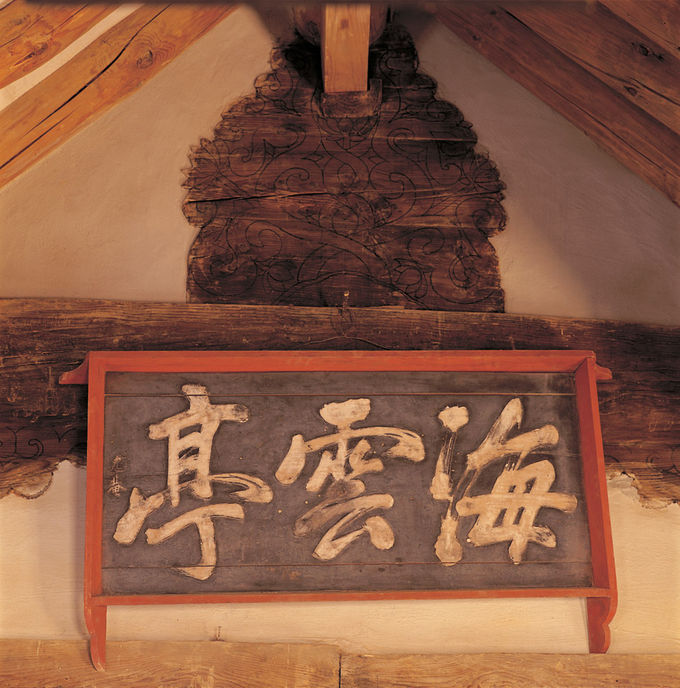 海雲亭